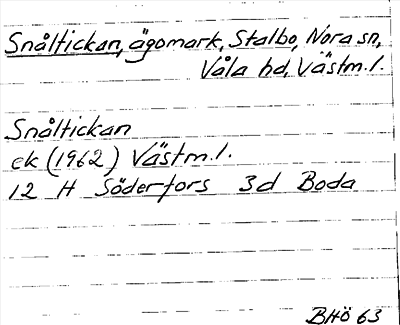 Snåltickan, ägomark, Stalbo, Nora sn,
Våla hd, Västm.l.
Snåltickan
ek (1962) Västm.l.
12 H Söderfors 3d Boda
BHÖ 63